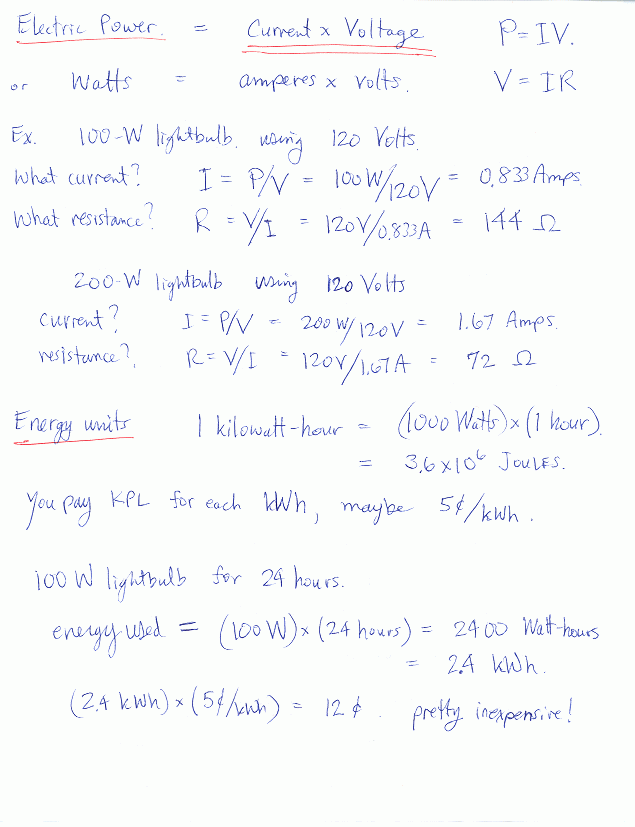 Electric Power. = Current x Voltage P = IV.
or Watts = amperes x volts. V = IR
Ex. 100-W lightbulb. using 120 Volts.
What current? I = P/V = 100W/120V = 0.833 Amps.
What resistance? R = V/I = 120V/0.833A = 144 Ω
200-W lightbulb using 120 Volts
current? I = P/V = 200 W/120V = 1.67 Amps.
resistance? R = V/I = 120V/1.67A = 72 Ω
Energy units 1 kilowatt-hour = (1000 Watts) x (1 hour).
= 3.6 x 10⁶ Joules.
You pay KPL for each kWh, maybe 5¢/kWh.
100 W lightbulb for 24 hours.
energy used = (100 W) x (24 hours) = 2400 Watt-hours
= 2.4 kWh.
(2.4 kWh) x (5¢/kWh) = 12 ¢. pretty inexpensive!